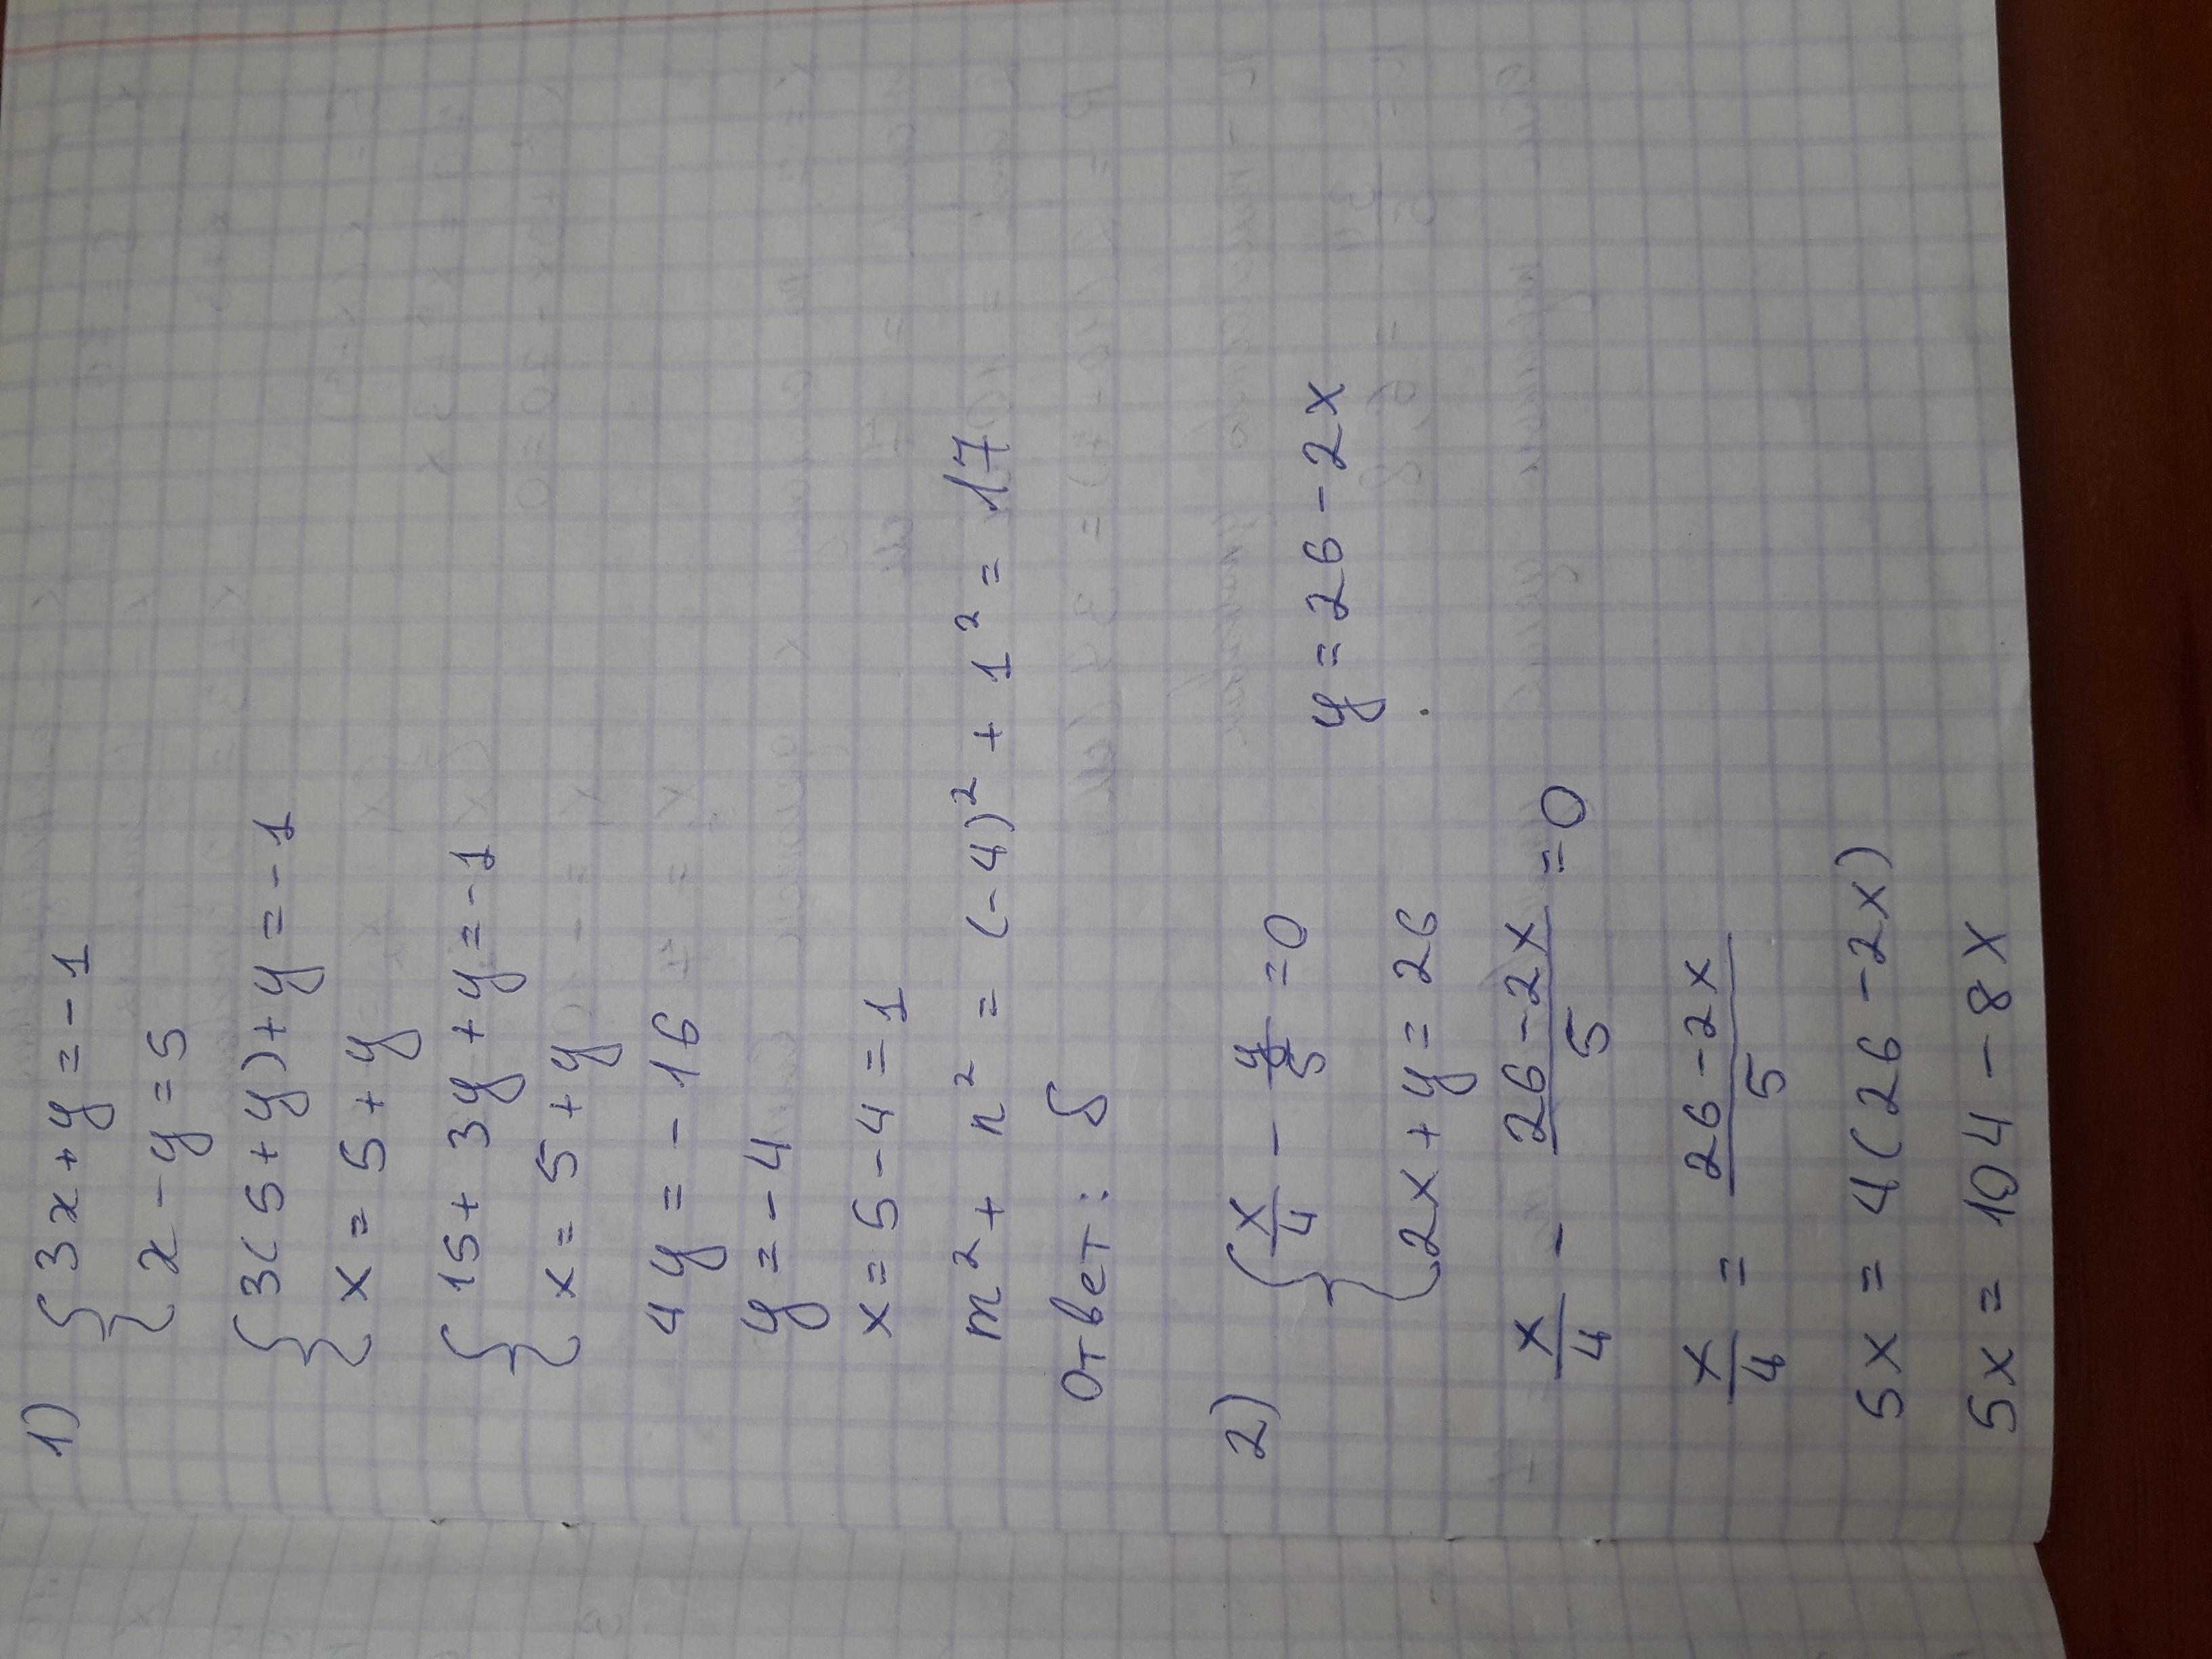 1) { 3x + y = -1
x - y = 5
{ 3(5+y) + y = -1
x = 5 + y
{ 15 + 3y + y = -1
x = 5 + y
4y = -16
y = -4
x = 5 - 4 = 1
m² + n² = (-4)² + 1² = 17
Ответ: б
2) { x/4 - y/5 = 0
2x + y = 26 y = 26 - 2x
x/4 - (26-2x)/5 = 0
x/4 = (26-2x)/5
5x = 4(26-2x)
5x = 104 - 8x